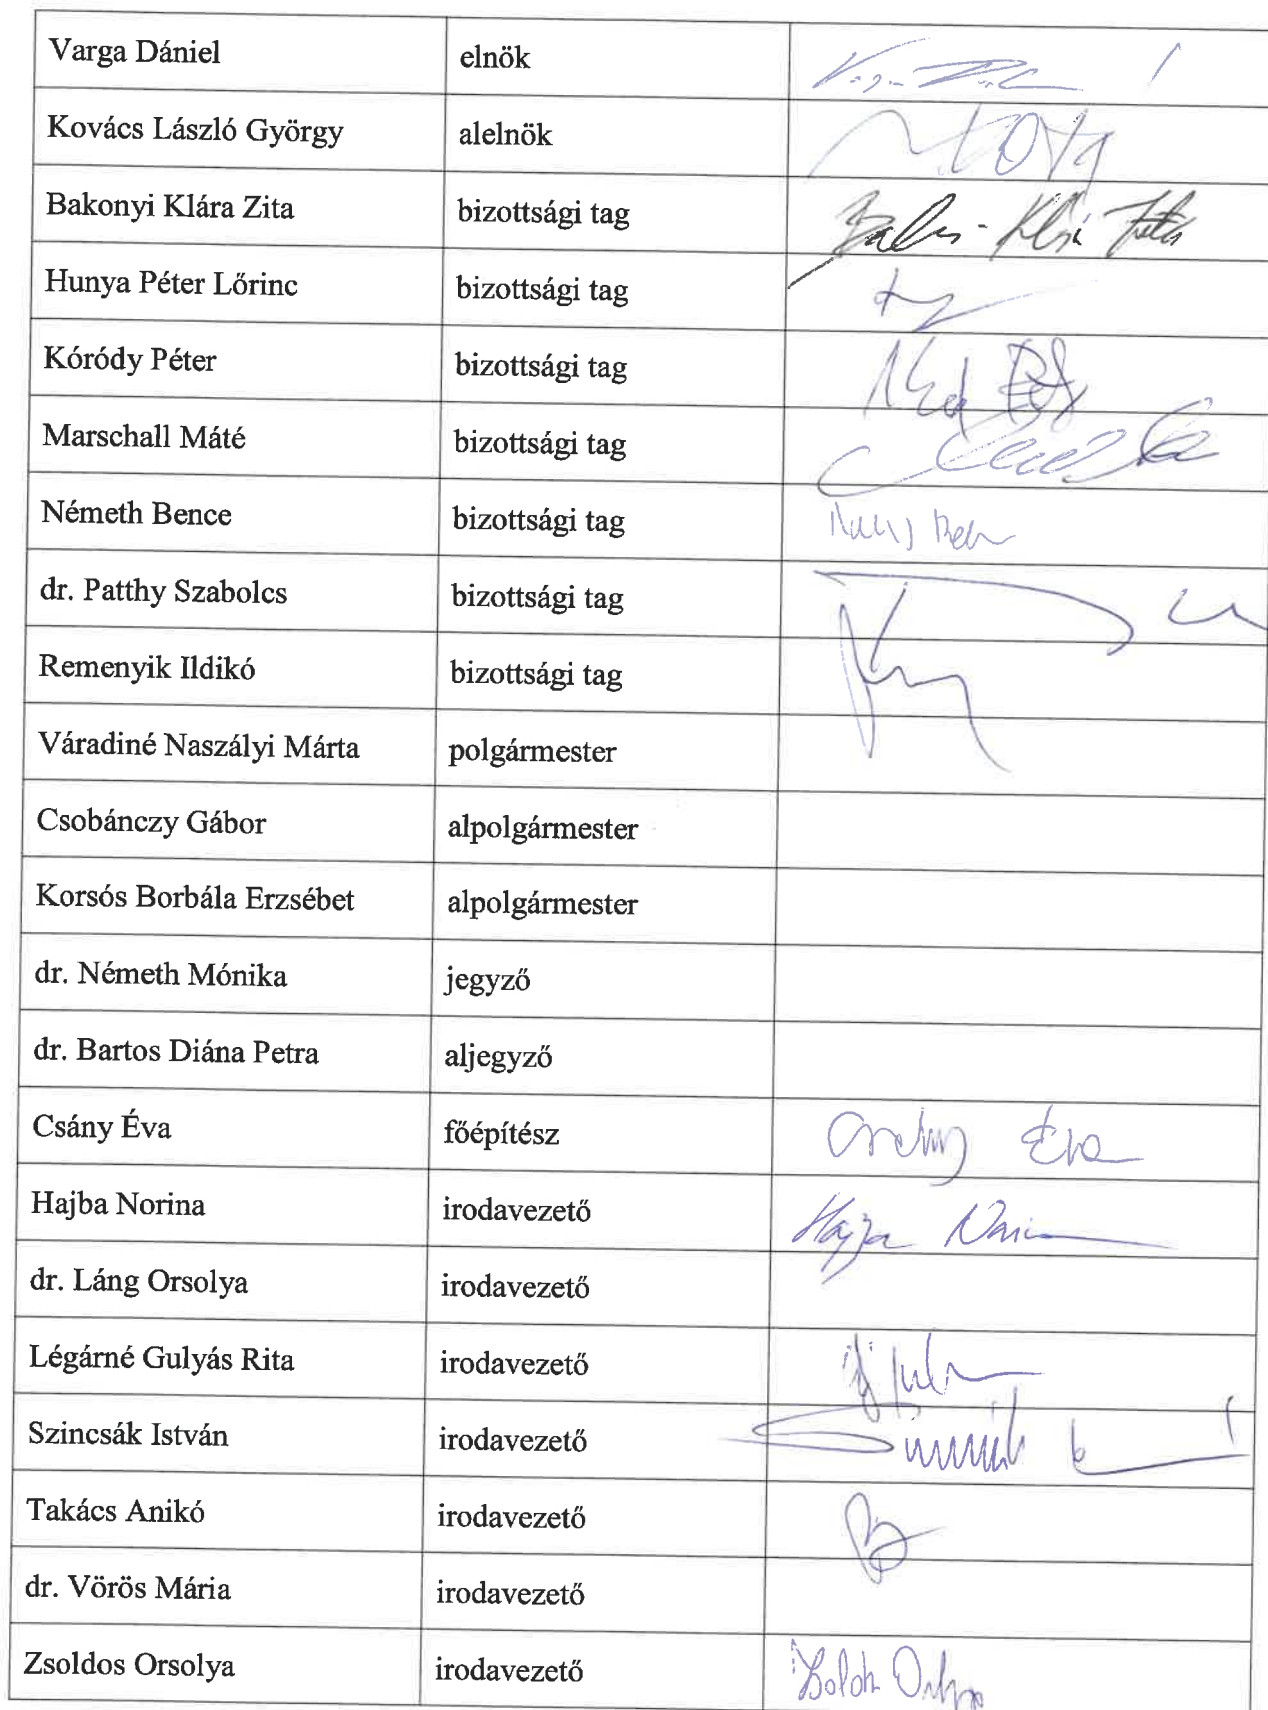 Varga Dániel elnök
Kovács László György alelnök
Bakonyi Klára Zita bizottsági tag
Hunya Péter Lőrinc bizottsági tag
Kóródy Péter bizottsági tag
Marschall Máté bizottsági tag
Németh Bence bizottsági tag
dr. Patthy Szabolcs bizottsági tag
Remenyik Ildikó bizottsági tag
Váradiné Naszályi Márta polgármester
Csobánczy Gábor alpolgármester
Korsós Borbála Erzsébet alpolgármester
dr. Németh Mónika jegyző
dr. Bartos Diána Petra aljegyző
Csány Éva főépítész
Hajba Norina irodavezető
dr. Láng Orsolya irodavezető
Légárné Gulyás Rita irodavezető
Szincsák István irodavezető
Takács Anikó irodavezető
dr. Vörös Mária irodavezető
Zsoldos Orsolya irodavezető